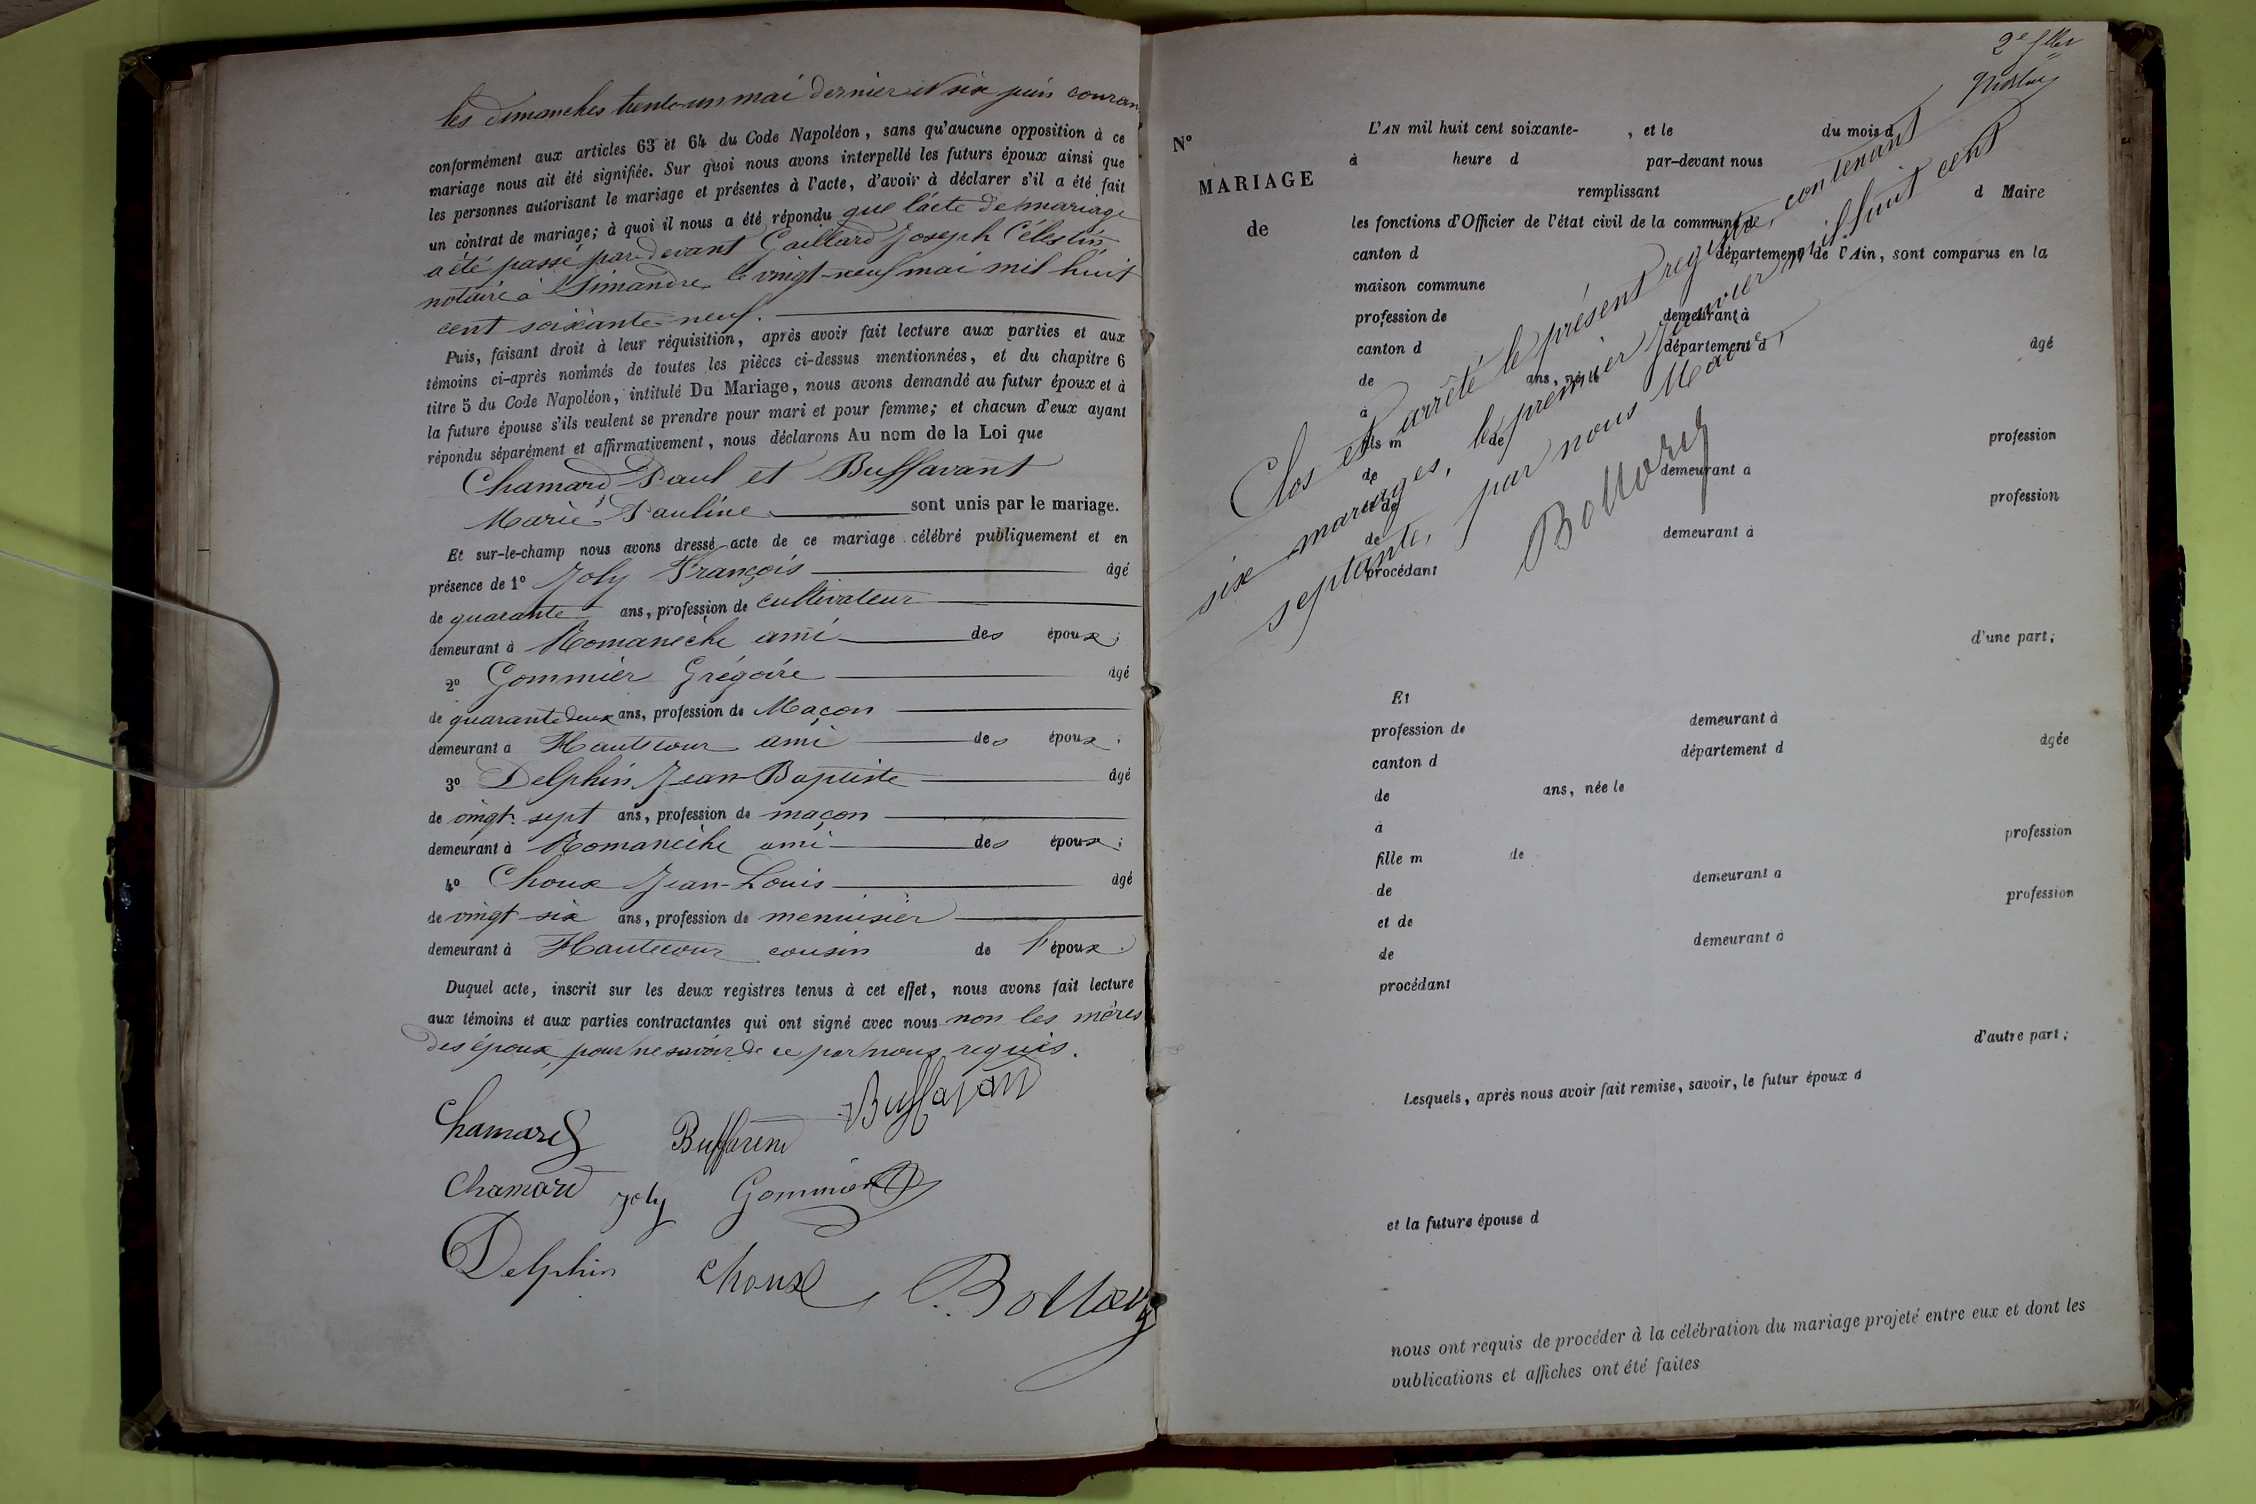 les dimanches trente-un mai dernier et six juin couran
conformément aux articles 63 et 64 du Code Napoléon, sans qu'aucune opposition à ce
mariage nous ait été signifiée. Sur quoi nous avons interpellé les futurs époux ainsi que
les personnes autorisant le mariage et présentes à l'acte, d'avoir à déclarer s'il a été fait
un contrat de mariage; à quoi il nous a été répondu que l'acte de mariage
a été passé par devant Gaillard Joseph Célestin,
notaire à Simandre le vingt-neuf mai mil huit
cent soixante neuf.
Puis, faisant droit à leur réquisition, après avoir fait lecture aux parties et aux
témoins ci-après nommés de toutes les pièces ci-dessus mentionnées, et du chapitre 6
titre 5 du Code Napoléon, intitulé Du Mariage, nous avons demandé au futur époux et à
la future épouse s'ils veulent se prendre pour mari et pour femme; et chacun d'eux ayant
répondu séparément et affirmativement, nous déclarons Au nom de la Loi que
Chamard Paul et Buffavant
Marie Pauline sont unis par le mariage.
Et sur-le-champ nous avons dressé acte de ce mariage célébré publiquement et en
présence de 1° Joly François âgé
de quarante ans, profession de cultivateur
demeurant à Romanèche ami des époux;
2° Gommier Grégoire âgé
de quarante deux ans, profession de Maçon
demeurant à Hautecour ami des époux;
3° Delphin Jean-Baptiste âgé
de vingt-sept ans, profession de maçon
demeurant à Romanèche ami des époux;
4° Choux Jean-Louis âgé
de vingt-six ans, profession de menuisier
demeurant à Hautecour cousin de l'époux.
Duquel acte, inscrit sur les deux registres tenus à cet effet, nous avons fait lecture
aux témoins et aux parties contractantes qui ont signé avec nous non les mères
des époux, pour ne savoir de ce par nous requis.
Buffavan
Chamard
Chamard Joly Gommier
Delphin Choux
2e
N° L'AN mil huit cent soixante- , et le du mois d
à heure d par-devant nous
MARIAGE remplissant d Maire
de les fonctions d'Officier de l'état civil de la commune d
canton d département de l'Ain, sont comparus en la
maison commune
profession de demeurant à
canton d département d âgé
de ans, né le
à
fils m de profession
de demeurant à
et de profession
de demeurant à
procédant
Clos et arrêté le présent registre, contenant
six mariages, le premier Janvier mil huit cent
septante, par nous Maire,
d'une part;
Et
profession de demeurant à
canton d département d âgée
de ans, née le
à
fille m de profession
de demeurant à
et de profession
de demeurant à
procédant
d'autre part;
Lesquels, après nous avoir fait remise, savoir, le futur époux d
et la future épouse d
nous ont requis de procéder à la célébration du mariage projeté entre eux et dont les
publications et affiches ont été faites